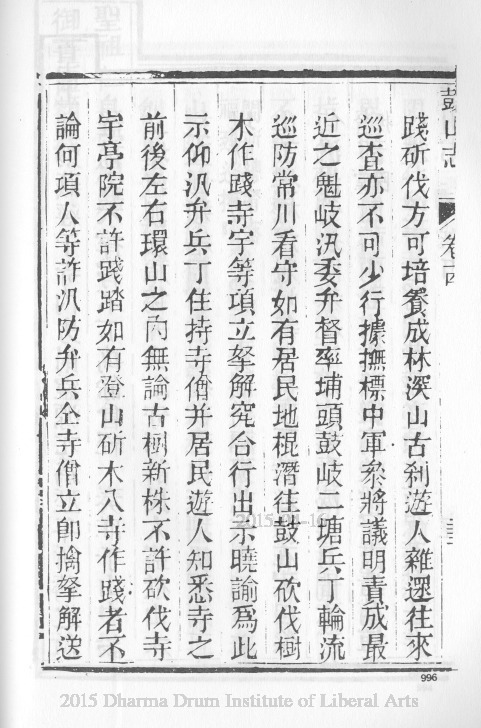 鼓山志
卷一四
踐斫伐方可培養成林深山古刹遊人雜遝往來
巡査亦不可少行據撫標中軍叅將議明責成最
近之魁岐汛委弁督率埔頭鼓岐二塘兵丁輪流
巡防常川看守如有居民地棍潛往鼓山砍伐樹
木作踐寺宇等項立拏解究合行出示曉諭爲此
示仰汛弁兵丁住持寺僧并居民遊人知悉寺之
前後左右環山之內無論古樹新株不許砍伐寺
宇亭院不許踐踏如有登山斫木入寺作踐者不
論何項人等許汛防弁兵仝寺僧立卽擒拏解送
2015-01-16
996
2015 Dharma Drum Institute of Liberal Arts